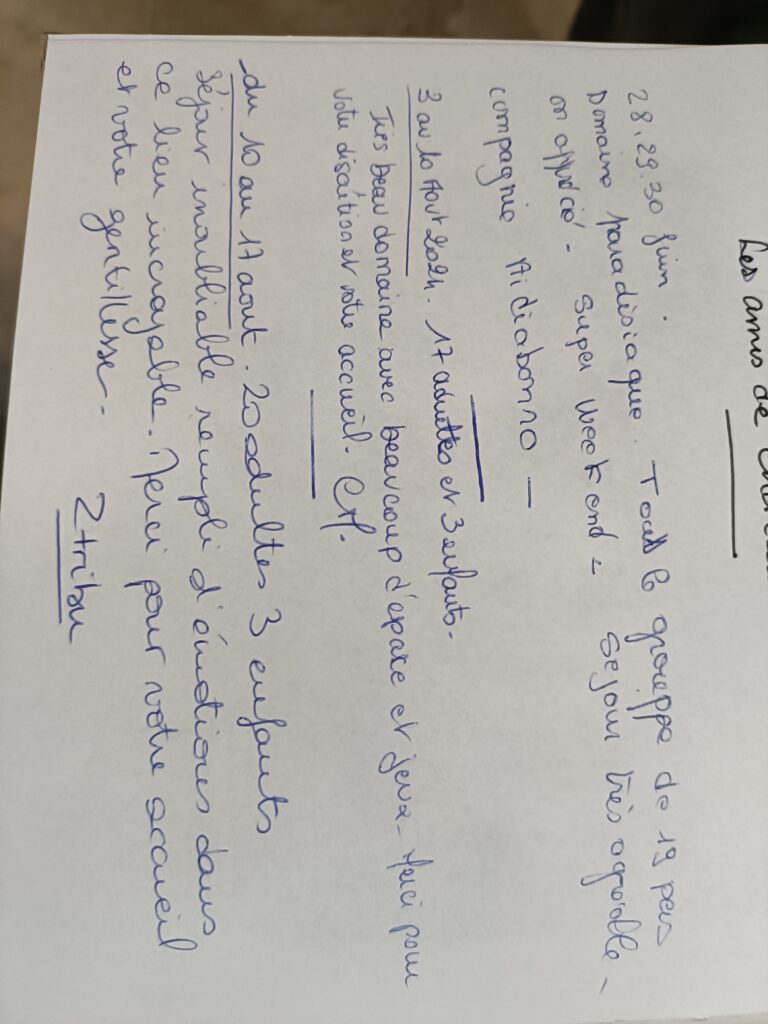 Les amis de
28.29.30 Juin.
Domaine paradisiaque. Tout le groupe de 19 pers
on apprécié. Super week end - Sejour très agréable -
compagnie Aidiabonno -
3 au 10 Aout 2024. 17 adultes et 3 enfants.
Très beau domaine avec beaucoup d'espace et jeux - Merci pour
votre discrétion et votre accueil.
du 10 au 17 aout. 20 adultes 3 enfants
Séjour inoubliable rempli d'émotions dans
ce lieu incroyable. Merci pour votre accueil
et votre gentillesse.
2 tribu